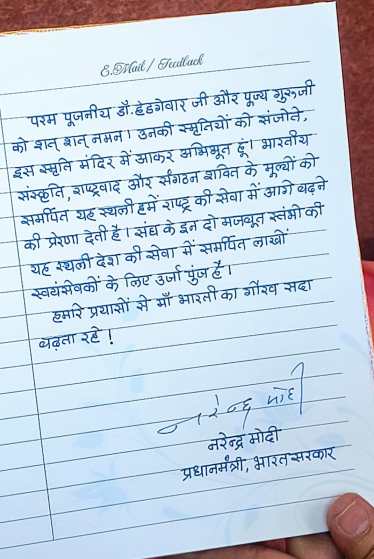 E.Mail / Feedback
परम पूजनीय डॉ. हेडगेवार जी और पूज्य गुरुजी
को शत् शत् नमन। उनकी स्मृतियों को संजोते,
इस स्मृति मंदिर में आकर अभिभूत हूं। भारतीय
संस्कृति, राष्ट्रवाद और संगठन शक्ति के मूल्यों को
समर्पित यह स्थली हमें राष्ट्र की सेवा में आगे बढ़ने
की प्रेरणा देती है। संघ के इन दो मजबूत स्तंभों की
यह स्थली देश की सेवा में समर्पित लाखों
स्वयंसेवकों के लिए उर्जा पुंज है।
हमारे प्रयासों से माँ भारती का गौरव सदा
बढ़ता रहे !
नरेन्द्र मोदी
नरेन्द्र मोदी
प्रधानमंत्री, भारत सरकार